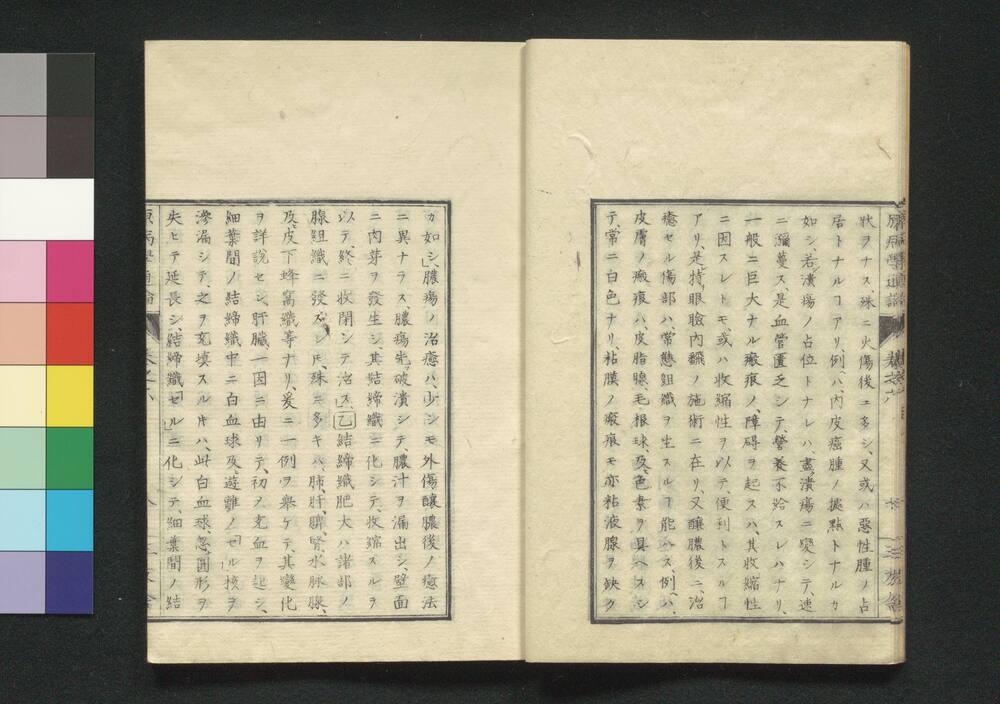 狀ヲナス、殊ニ火傷後ニ多シ、又或ハ惡性腫ノ占
居トナルヿアリ、例ハ、内皮癌腫ノ據點トナルカ
如シ、若潰瘍ノ占位トナレハ、盡潰瘍ニ變シテ、速
ニ瀰蔓ス、是血管匱乏シテ、營養不給スレハナリ、
一般ニ巨大ナル瘢痕ノ、障碍ヲ起スハ、其收縮性
ニ因スレトモ、或ハ收縮性ヲ以テ、便利トスルヿ
アリ、是特眼瞼内飜ノ施術ニ在リ、又釀膿後ニ、治
癒セル傷部ハ、常態組織ヲ生スルヿ能ハス、例ハ、
皮膚ノ瘢痕ハ、皮脂腺、毛根球、及色素ヲ具ヘスシ
テ、常ニ白色ナリ、粘膜ノ瘢痕モ亦粘液腺ヲ缺ク
カ如シ、膿瘍ノ治癒ハ、少シモ外傷釀膿後ノ癒法
ニ異ナラス、膿瘍先破潰シテ、膿汁ヲ漏出シ、壁面
ニ内芽ヲ發生シ、其結締織ニ化シテ、收縮スルヲ
以テ、終ニ收閉シテ治ス、乙結締織肥大ハ諸部ノ
腺組織ニ發スレ𪜈、殊ニ多キハ、肺、肝、脾、腎、水脉腺、
及皮下蜂窩織等ナリ、爰ニ一例ヲ擧ケテ、其變化
ヲ詳說セン、肝臟一因ニ由リテ、初メ充血ヲ起シ、
細葉間ノ結締織中ニ白血球及遊離ノ「セル」核ヲ
滲漏シテ、之ヲ充填スル片ハ、此白血球、忽圓形ヲ
失ヒテ延長シ、結締織「セル」ニ化シテ、細葉間ノ結
原病學通論